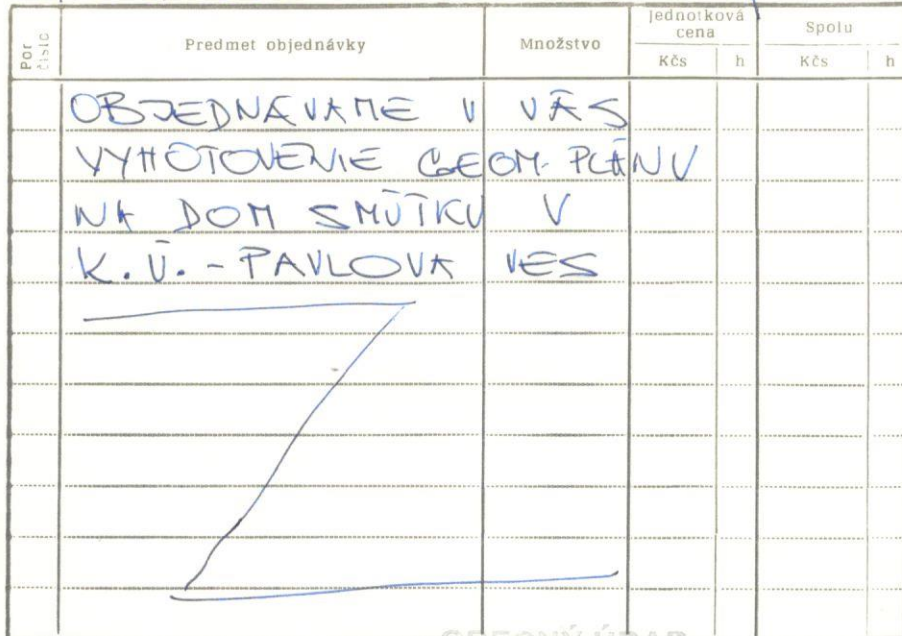 Por číslo
Predmet objednávky
Množstvo
Jednotková cena
Spolu
Kčs
h
Kčs
h
OBJEDNÁVAME U VÁS
VYHOTOVENIE GEOM. PLÁNU
NA DOM SMÚTKU V
K.Ú. - PAVLOVA VES
OBECNÝ ÚRAD